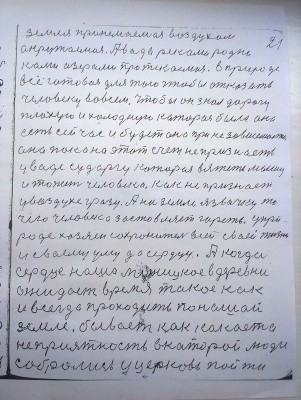 21
земля принемаемая воздухом
окружаемая. А вада реками родни
ками озерами протекаемая. В природе
всё готовая для того чтобы отказать
человеку вовсем, чтобы он знал дорогу
плохую и холодную каторая была она
есть сей час и будет она при независимости
она пока на этот счет не признаеть
у ваде сударгу каторая
и может человека, как не признает
у воздухе грозу. А на земле язвачку то
чего человека заставляет гореть. У приро
роде хозяен сохронител всей своей жизни
и своему уму да серцу. А когда
сердце наше мужицкое в деревни
ожидает время такое как
и всегда проходить по нашей
земле, бывает как какаето
неприятность в каторой люди
собрались у церковь пойти